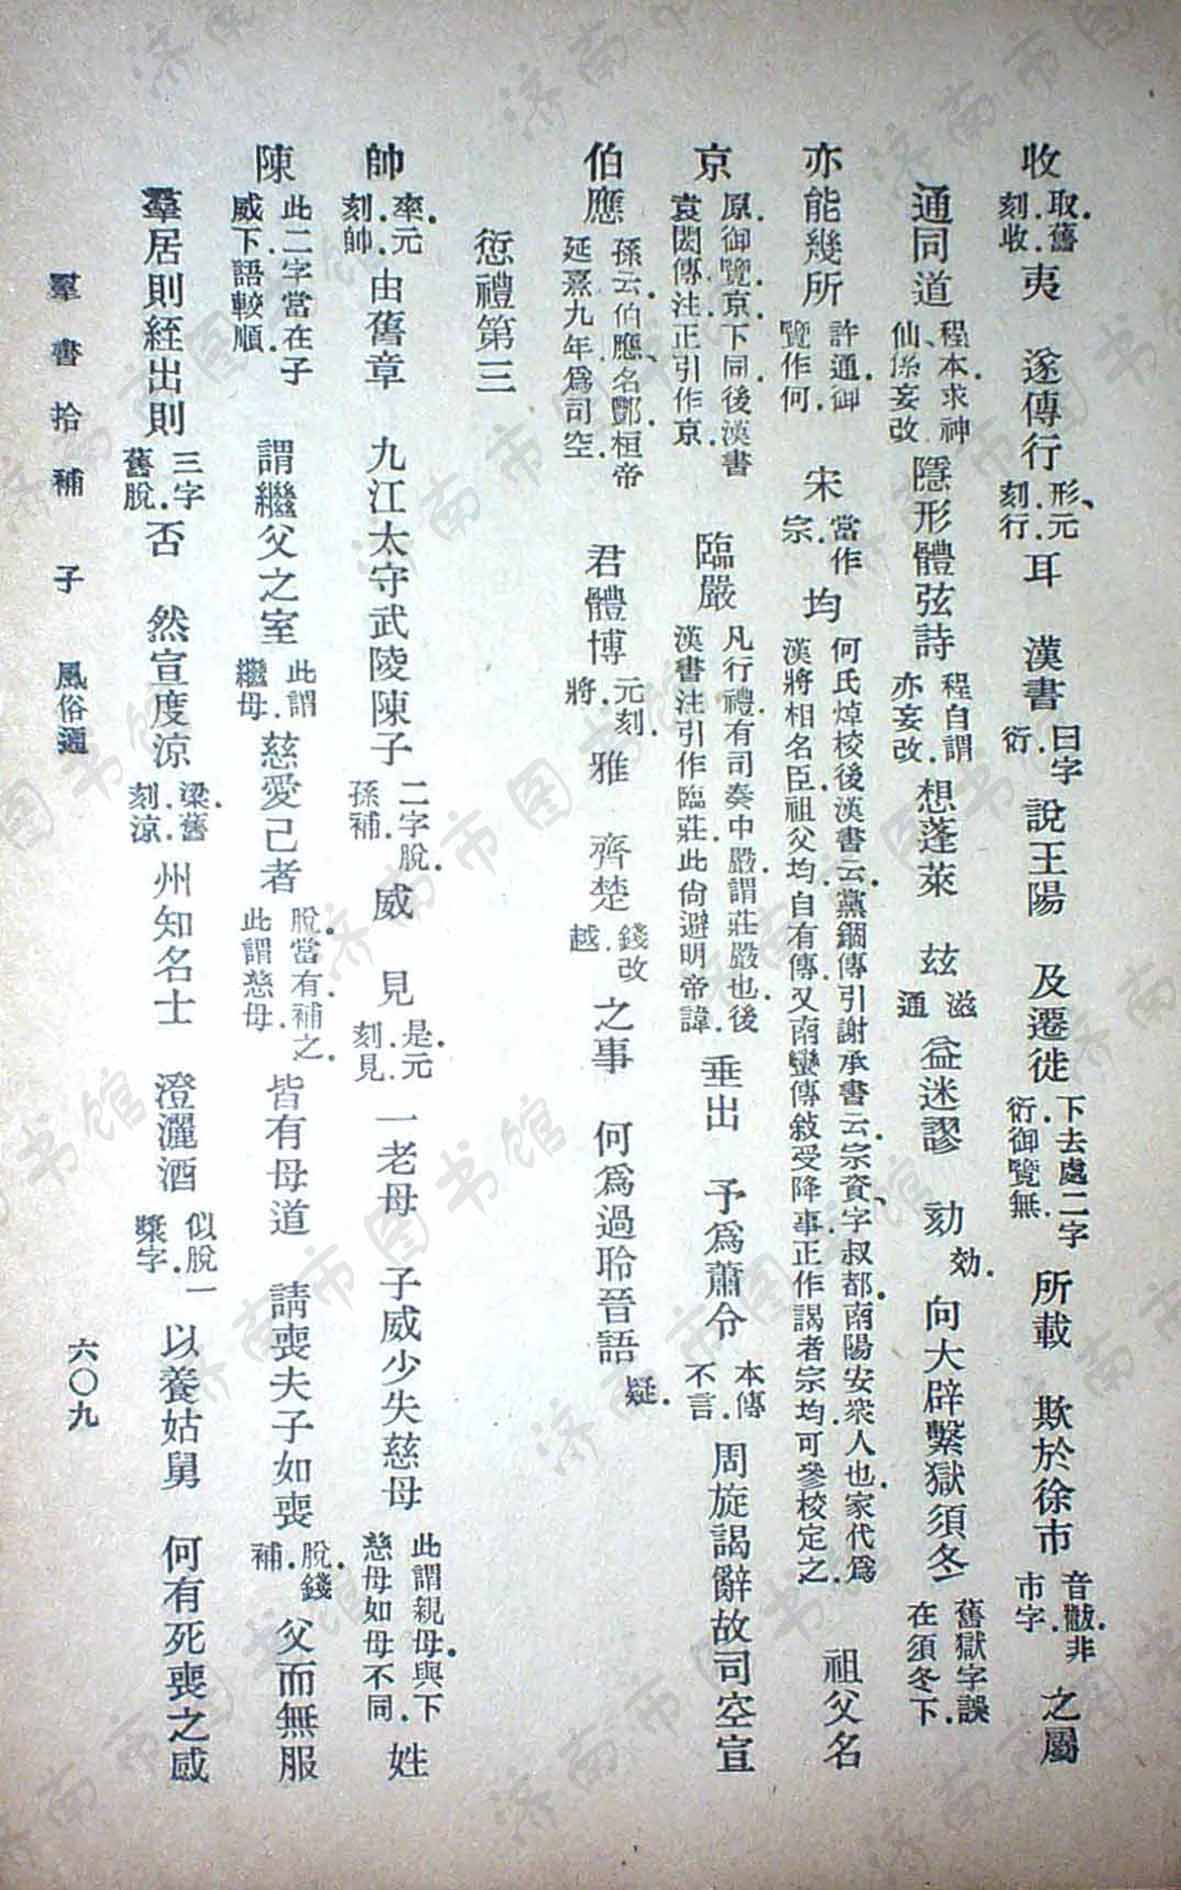 收取舊刻收夷　遂傳行形元刻行耳　漢書曰字衍說王陽　及遷徙下去處二字衍御覽無所載　欺於徐市音黻非市字之屬
通同道程本求神仙係妄改隱形體弦詩程自謂亦妄改想蓬萊　玆滋通益迷謬　効效向大辟繫獄須冬舊獄字誤在須冬下
亦能幾所許通御覽作何　宋當作宗均何氏焯校後漢書云黨錮傳引謝承書云宗資字叔都南陽安衆人也家代爲漢將相名臣祖父均自有傳又南蠻傳敍受降事正作謁者宗均可參校定之　祖父名
京原御覽京下同後漢書袁閎傳注正引作京　臨嚴凡行禮有司奏中嚴謂莊嚴也後漢書注引作臨莊此尚避明帝諱　垂出　予爲蕭令本傳不言　周旋謁辭故司空宣
伯應孫云伯應名酆桓帝延熹九年爲司空　君體博元刻將雅　齊楚錢改越　之事　何爲過聆晉語疑
愆禮第三
帥率元刻帥由舊章　九江太守武陵陳子二字脫孫補威　見是元刻見一老母　子威少失慈母此謂親母與下慈母如母不同　姓
陳此二字當在子威下語較順　謂繼父之室此謂繼母慈愛己者脫當有補之此謂慈母皆有母道　請喪夫子如喪脫錢補父而無服
羣居則絰出則三字舊脫否　然宣度涼梁舊刻涼州知名士　澄灑酒似脫一漿字　以養姑舅　何有死喪之慼
羣書拾補　子　風俗通　六〇九